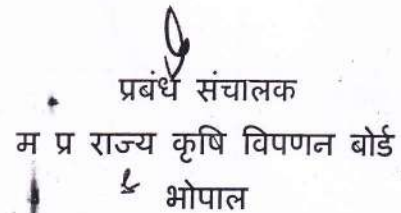 प्रबंध संचालक
म प्र राज्य कृषि विपणन बोर्ड
भोपाल